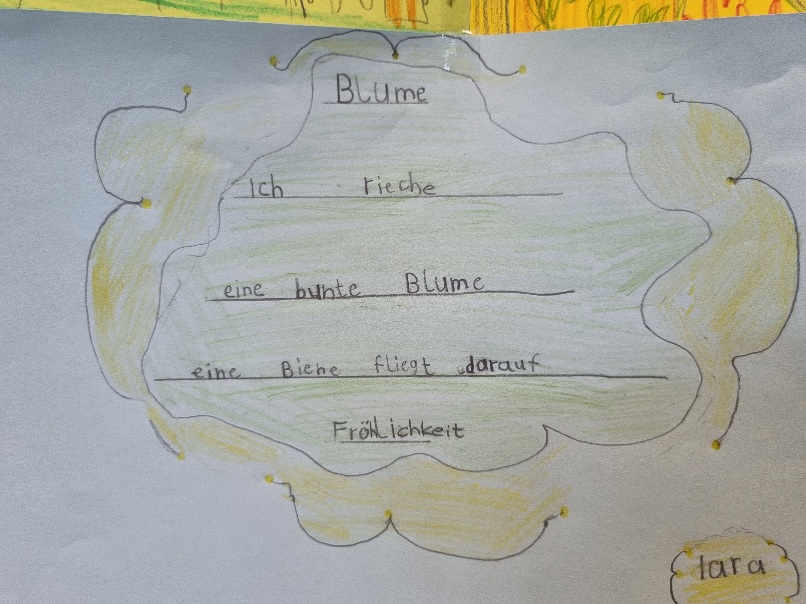 Blume
Ich rieche
eine bunte Blume
eine Biene fliegt darauf
Fröhlichkeit
lara